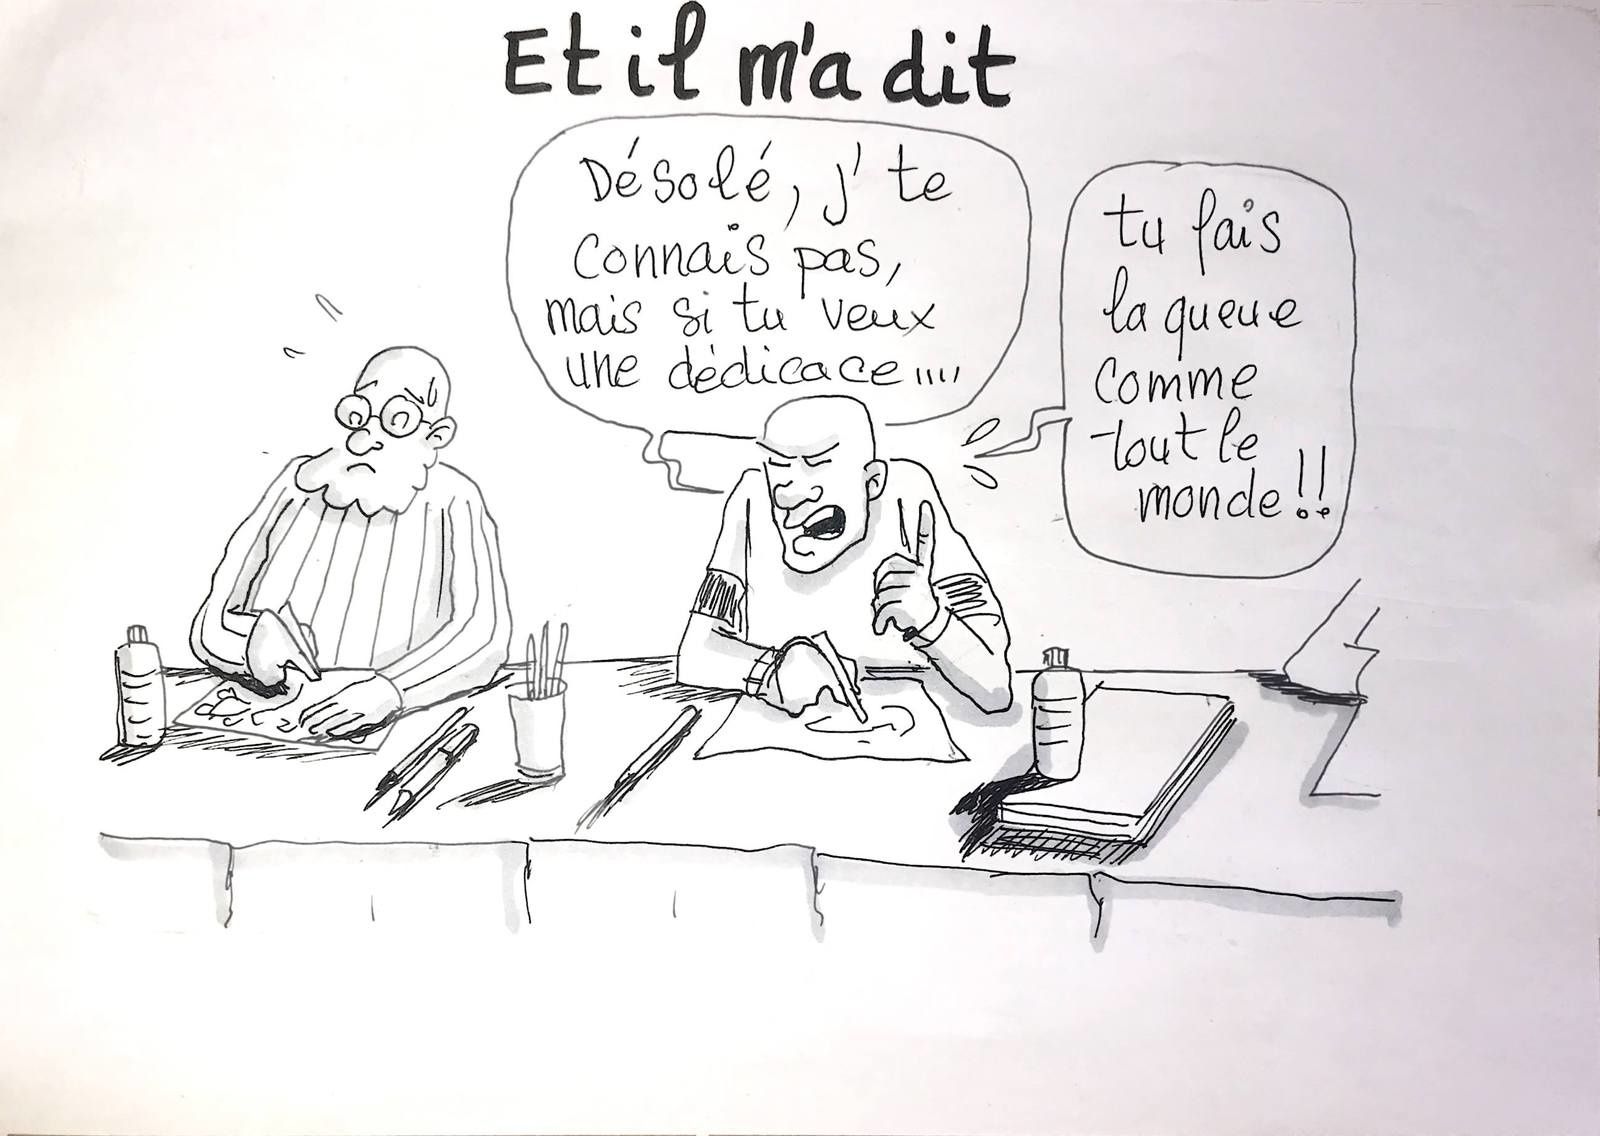 Et il m'a dit
Désolé, j'te
connais pas,
mais si tu veux
une dédicace.....
tu fais
la queue
comme
tout le
monde!!